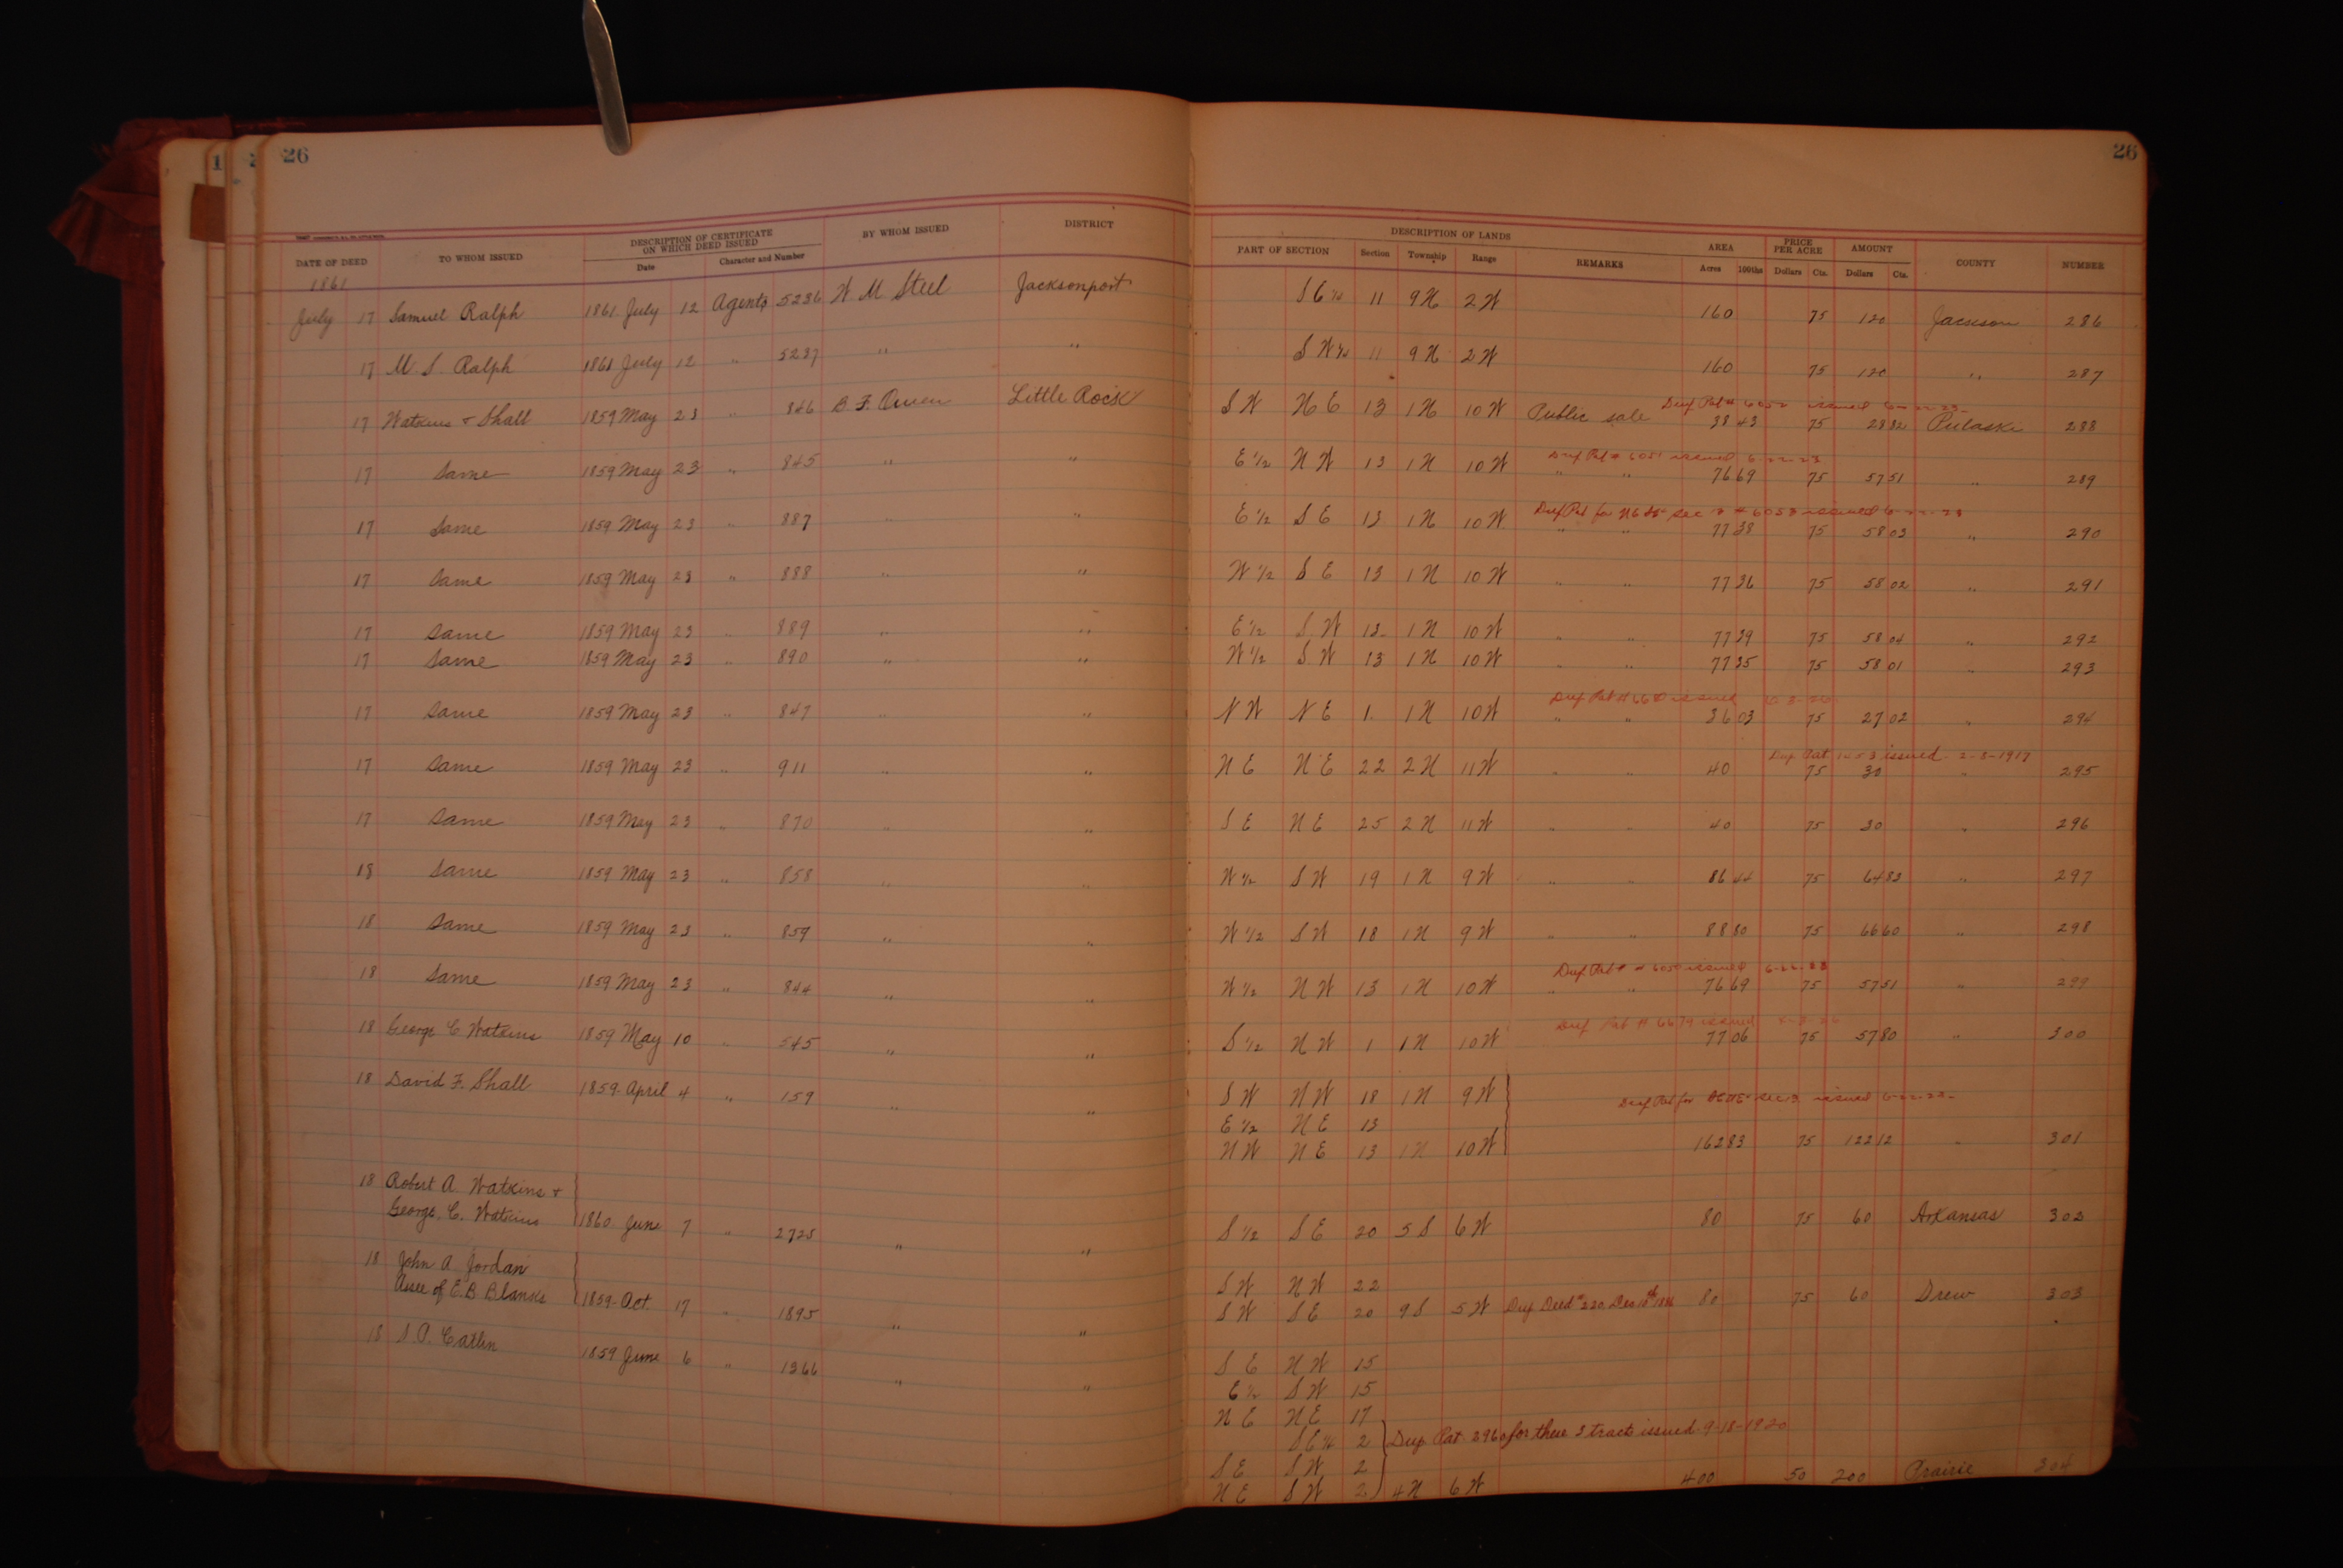 26 26
DATE OF DEED TO WHOM ISSUED DESCRIPTION OF CERTIFICATE ON WHICH DEED ISSUED Date Character and Number BY WHOM ISSUED DISTRICT DESCRIPTION OF LANDS PART OF SECTION Section Township Range REMARKS AREA Acres 100ths PRICE PER ACRE Dollars Cts. AMOUNT Dollars Cts. COUNTY NUMBER
1861
July 17 Samuel Ralph 1861 July 12 Agents 5236 W M Steel Jacksonport S E 1/4 11 9 N 2 W 160 75 120 Jackson 286
17 M. S. Ralph 1861 July 12 " 5237 " " S W 1/4 11 9 N 2 W 160 75 120 " 287
Dup Pat # issued 6-22-23
17 Watkins & Shall 1859 May 23 " 846 B. F. Owen Little Rock S W N E 13 1 N 10 W Public sale 38 43 75 28 82 Pulaski 288
Dup Pat # 6051 issued 6-22-23
17 Same 1859 May 23 " 845 " " E 1/2 N W 13 1 N 10 W " " 76 69 75 57 51 " 289
Dup Pat for NE SE sec # 6053 issued 6-22-23
17 Same 1859 May 23 " 887 " " E 1/2 S E 13 1 N 10 W " " 77 38 75 58 03 " 290
17 Same 1859 May 23 " 888 " " W 1/2 S E 13 1 N 10 W " " 77 36 75 58 02 " 291
17 Same 1859 May 23 " 889 " " E 1/2 S W 13 1 N 10 W " " 77 39 75 58 04 " 292
17 Same 1859 May 23 " 890 " " W 1/2 S W 13 1 N 10 W " " 77 35 75 58 01 " 293
Dup Pat # issued
17 Same 1859 May 23 " 847 " " N W N E 1 1 N 10 W " " 36 03 75 27 02 " 294
Dup Pat issued 2-3-1917
17 Same 1859 May 23 " 911 " " N E N E 22 2 N 11 W " " 40 75 30 " 295
17 Same 1859 May 23 " 870 " " S E N E 25 2 N 11 W " " 40 75 30 " 296
18 Same 1859 May 23 " 858 " " W 1/2 S W 19 1 N 9 W " " 86 44 75 64 83 " 297
18 Same 1859 May 23 " 859 " " W 1/2 S W 18 1 N 9 W " " 88 80 75 66 60 " 298
Dup Pat # 6050 issued 6-22-23
18 Same 1859 May 23 " 844 " " W 1/2 N W 13 1 N 10 W " " 76 69 75 57 51 " 299
Dup Pat # 6679 issued
18 George C Watkins 1859 May 10 " 545 " " S 1/2 N W 1 1 N 10 W 77 06 75 57 80 " 300
18 David F. Shall 1859 April 4 " 159 " " S W N W 18 1 N 9 W Dup Pat for issued 6-22-23
E 1/2 N E 13
N W N E 13 1 N 10 W 162 83 75 122 12 " 301
18 Robert A. Watkins &
George. C. Watkins 1860 June 7 " 2725 " " S 1/2 S E 20 5 S 6 W 80 75 60 Arkansas 302
18 John A Jordan S W N W 22
Asee of E. B Blanks 1859 Oct. 17 " 1895 " " S W S E 20 9 S 5 W Dup Deed # 220 Dec 10th 80 75 60 Drew 303
18 S. P. Catlin 1859 June 6 " 1366 " " S E N W 15
E 1/2 S W 15
N E N E 17
S E 1/4 2 Dup Pat 2960 for these 3 tracts issued 9-18-1920
S E S W 2
N E S W 2 4 N 6 W 400 50 200 Prairie 304